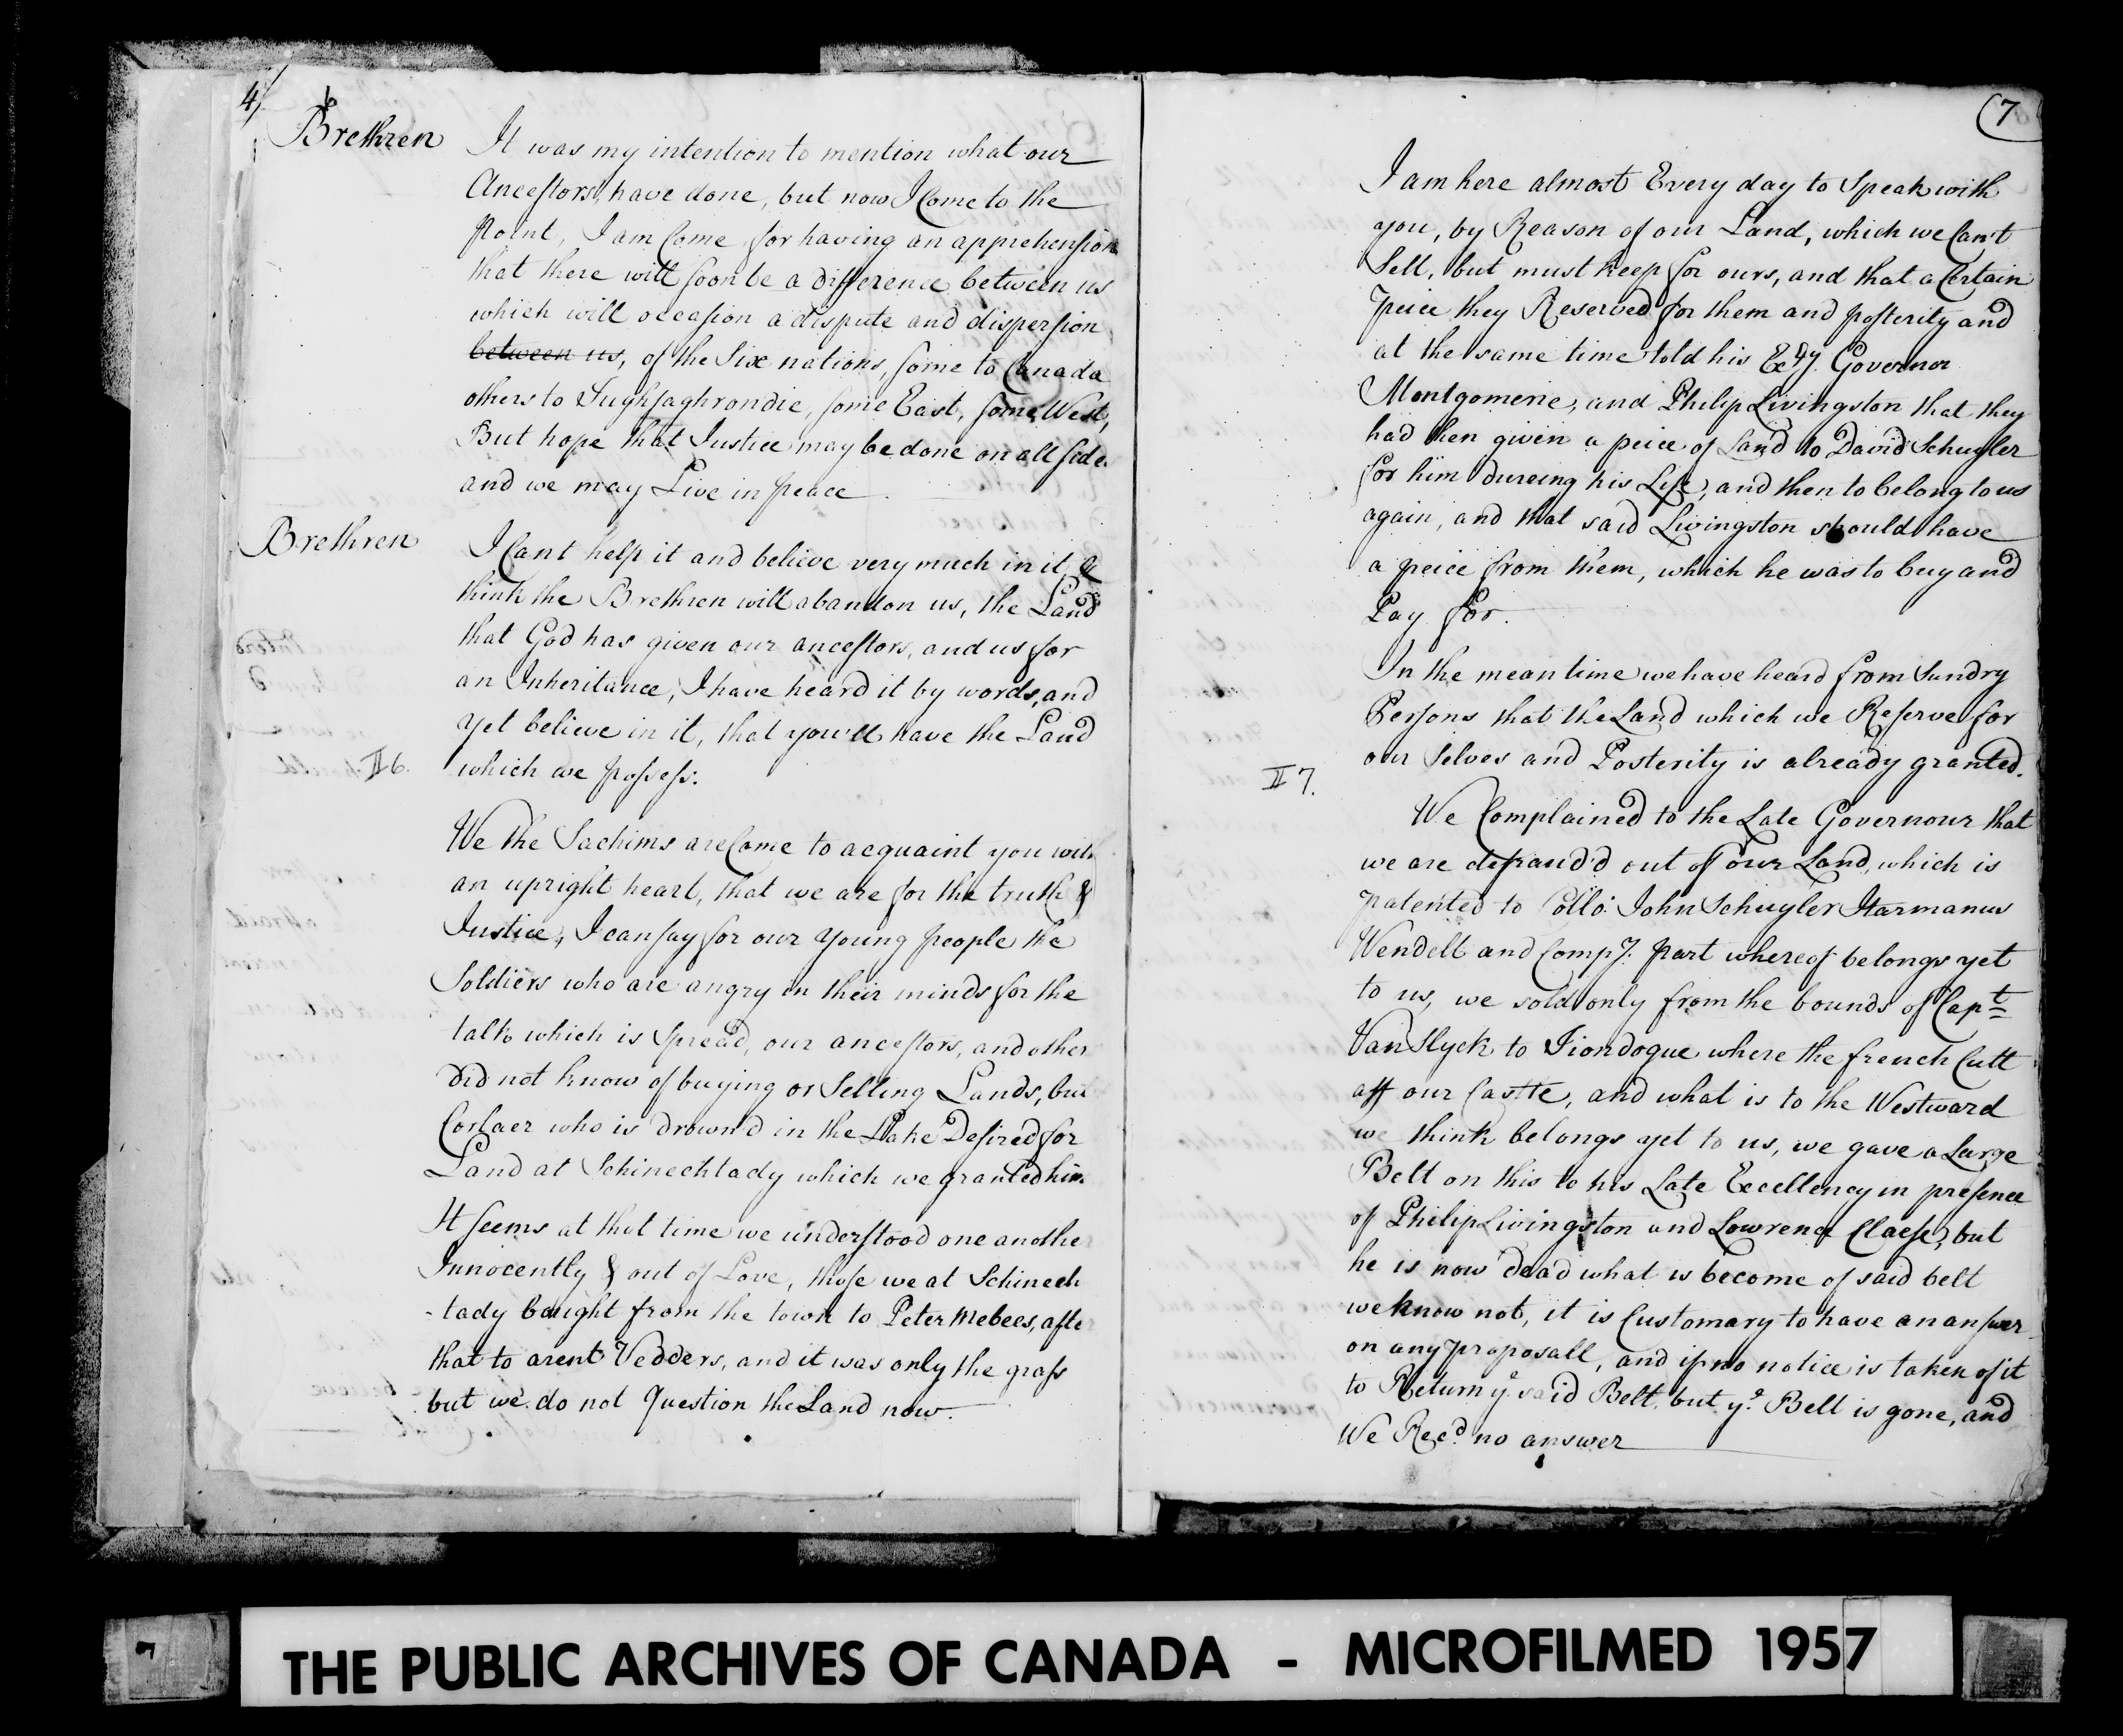 4/
6
Brethren
It was my intention to mention what our
Ancestors, have done, but now I Come to the
point, I am Come for having an apprehension
that there will soon be a difference between us
which will occasion a dispute and dispersion
between us, of the Six nations, some to Canada
others to Tughsaghrondie, some East, some West,
But hope that Justice may be done on all side
and we may Live in peace
Brethren
I Cant help it and believe very much in it, &
think the Brethren will abandon us, the Land
that God has given our ancestors, and us for
an Inheritance, I have heard it by words, and
yet believe in it, that you'll have the Land
which we possess.
II 6.
We the Sachims are Come to acquaint you with
an upright heart, that we are for the truth &
Justice, I can say for our young people the
Soldiers who are angry in their minds for the
talk which is spread, our ancestors, and other
did not know of buying or Selling Lands, but
Corlaer who is drown'd in the Lake Desired for
Land at Schinechtady which we granted him
It seems at that time we understood one another
Innocently & out of Love, those we at Schinech
-tady bought from the town to Peter Mebees, after
that to arent Vedders, and it was only the grass
but we do not Question the Land now.
7
I am here almost Every day to Speak with
you, by Reason of our Land, which we Can't
Sell, but must keep for ours, and that a Certain
peice they Reserved for them and posterity and
at the same time told his Excy. Governor
Montgomerie, and Philip Livingston that they
had then given a peice of Land to David Schuyler
for him dureing his Life, and then to belong to us
again, and that said Livingston should have
a peice from them, which he was to buy and
Pay for.
In the mean time we have heard from Sundry
Persons that the Land which we Reserve for
our Selves and Posterity is already granted.
II 7.
We Complained to the Late Governour that
we are defraud'd out of our Land, which is
patented to Collo. John Schuyler Harmanus
Wendell and Compy. part whereof belongs yet
to us, we sold only from the bounds of Capt
Van Slyck to Tiondogue where the french Cutt
aff our Castle, and what is to the Westward
we think belongs yet to us, we gave a Large
Belt on this to his Late Excellency in presence
of Philip Livingston and Lowrence Claese, but
he is now dead what is become of said belt
we know not, it is Customary to have an answer
on any proposall, and if no notice is taken of it
to Return ye. said Belt, but ye. Belt is gone, and
We Recd. no answer
7
THE PUBLIC ARCHIVES OF CANADA - MICROFILMED 1957